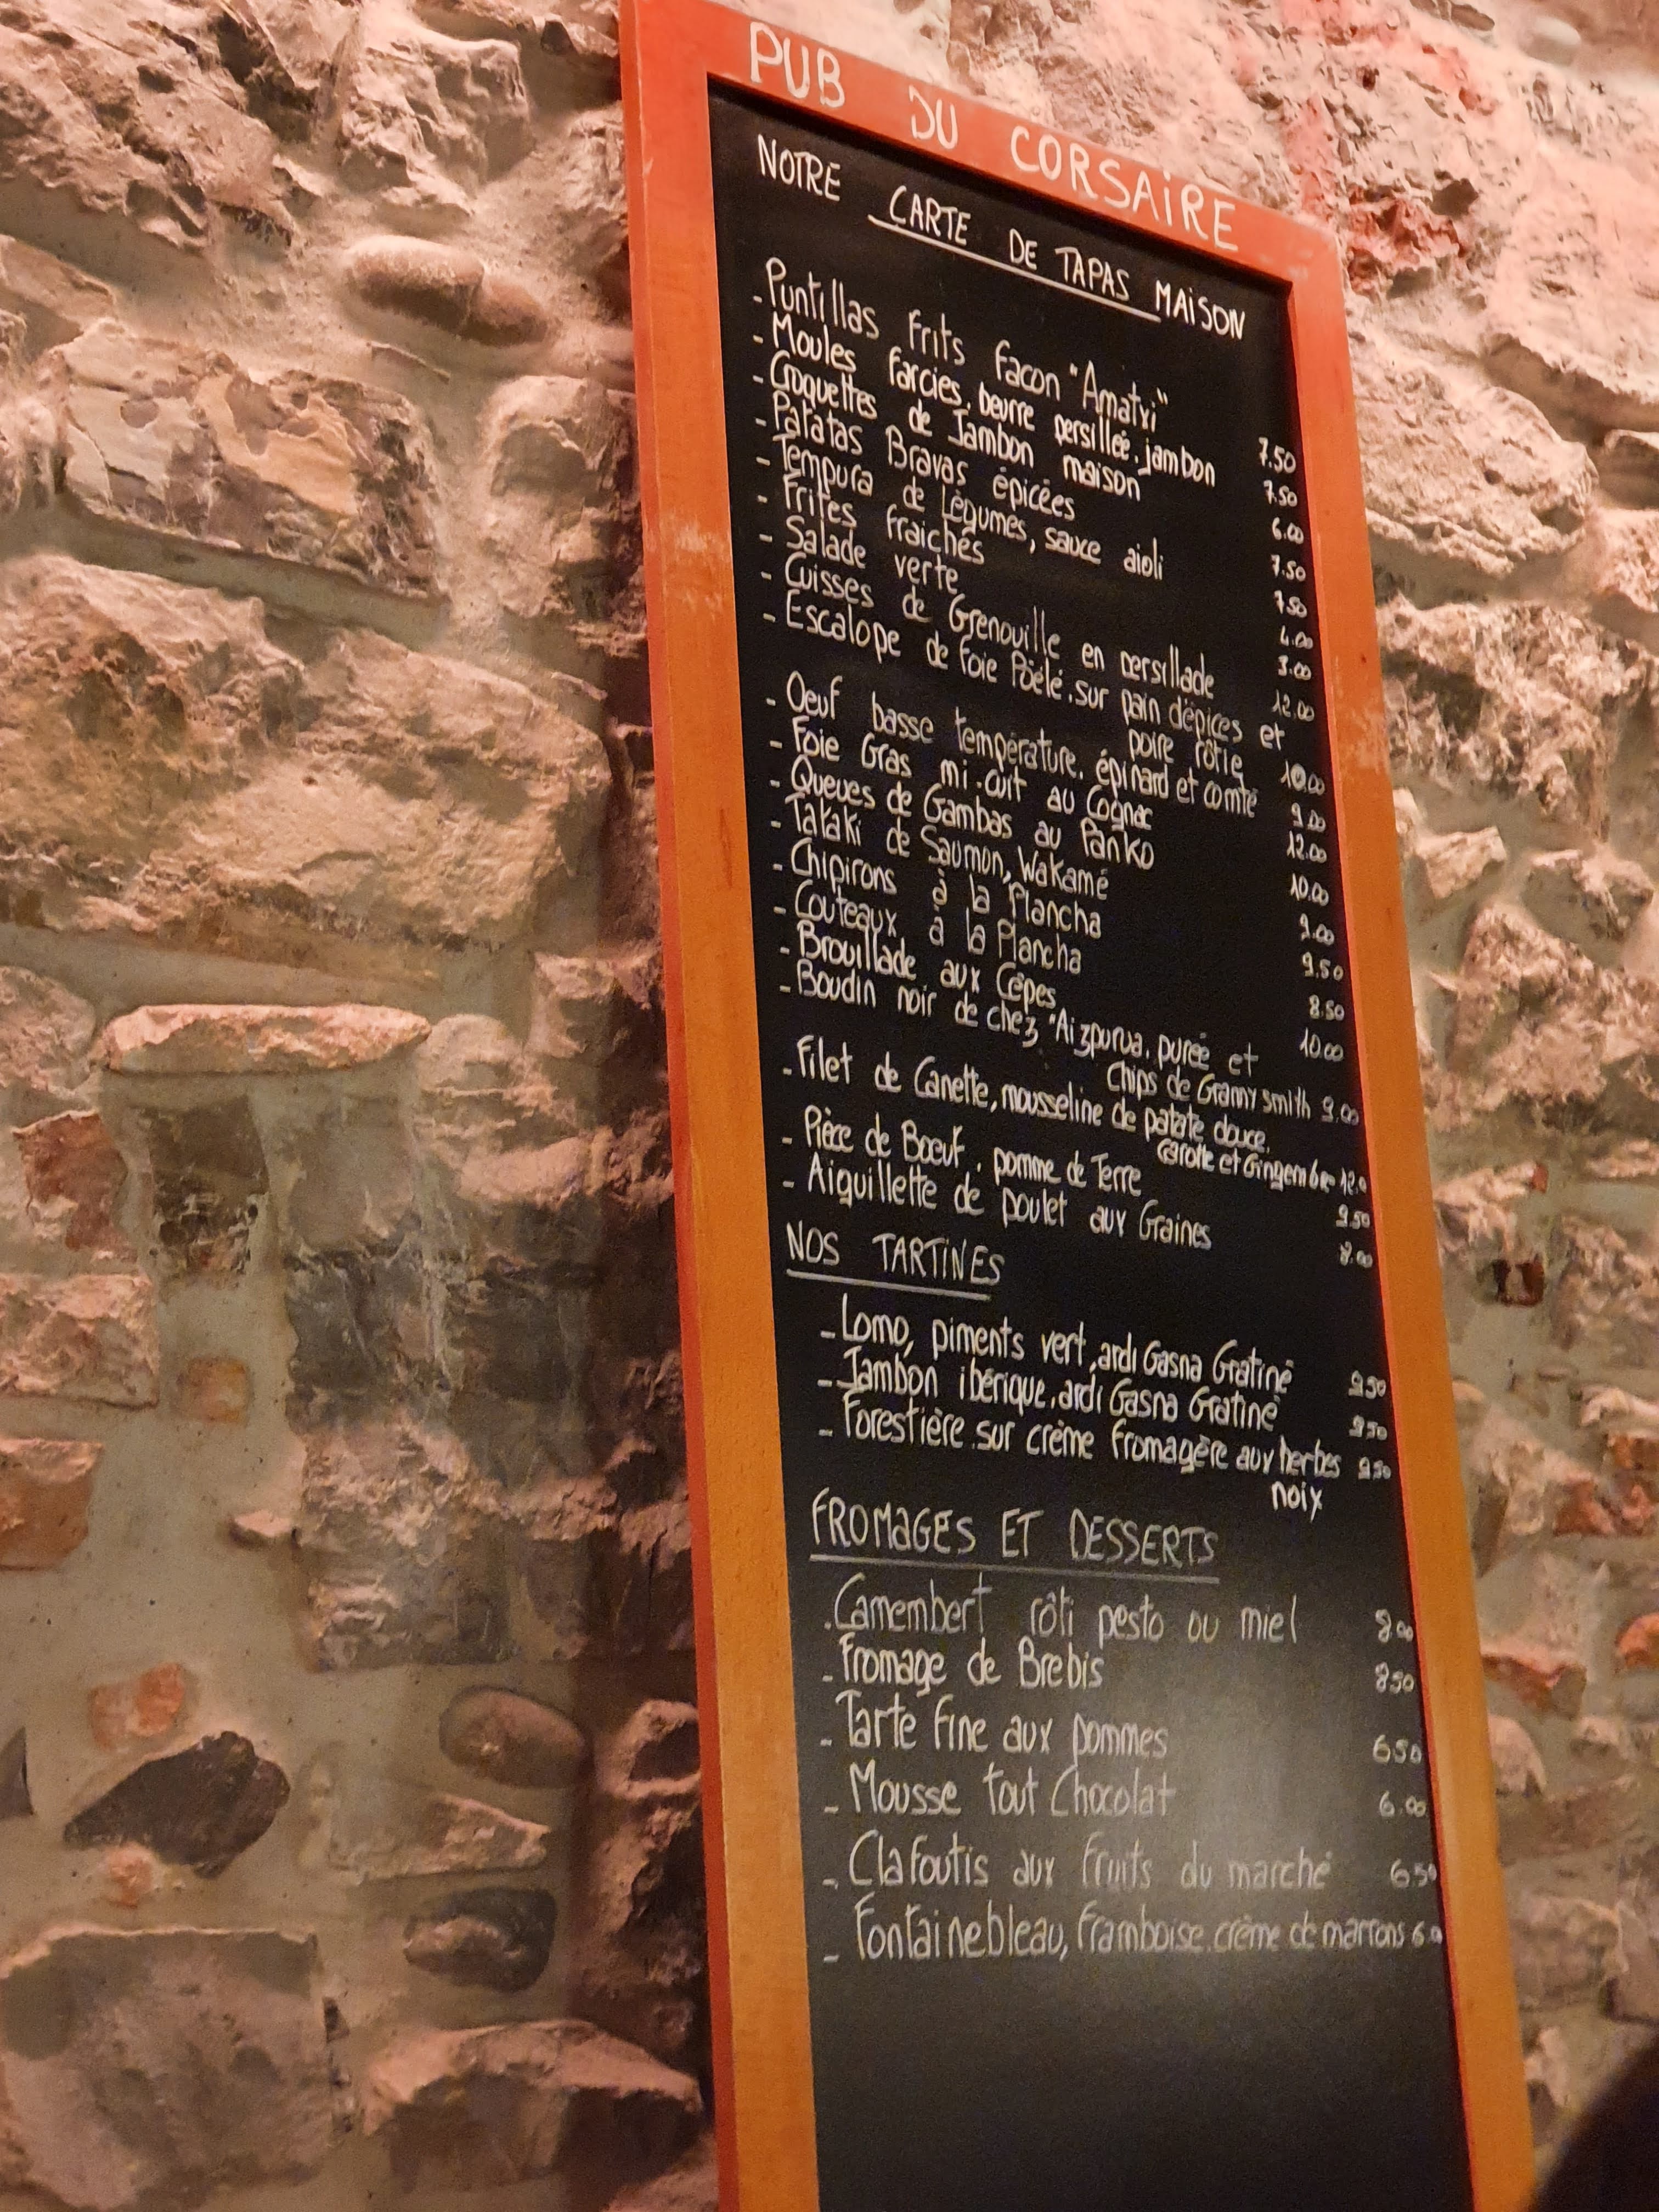 PUB DU CORSAIRE
NOTRE CARTE DE TAPAS MAISON
- Puntillas Frits facon "Amatxi" 7.50
- Moules farcies, beurre persilleé, jambon 7.50
- Croquettes de Jambon maison 6.00
- Patatas Bravas épicées 7.50
- Tempura de Légumes, sauce aïoli 7.50
- Frites fraiches 4.00
- Salade verte 3.00
- Cuisses de Grenouille en persillade 12.00
- Escalope de foie Pöélé, sur pain d'épices et
poire rôtie 10.00
- Oeuf basse température, épinard et comté 9.00
- Foie Gras mi-cuit au Cognac 12.00
- Queues de Gambas au Panko 10.00
- Tataki de Saumon, Wakamé 9.00
- Chipirons à la Plancha 9.50
- Couteaux à la Plancha 8.50
- Brouillade aux Cêpes 10.00
- Boudin noir de chez "Aizpurua, purée et
chips de Granny smith 9.00
- Filet de Canette, mousseline de patate douce,
carotte et Gingembre 12.0
- Pièce de Boeuf, pomme de Terre 9.50
- Aiguillette de poulet aux Graines 8.00
NOS TARTINES
- Lomo, piments vert, ardi Gasna Gratiné 9.50
- Jambon ibérique, ardi Gasna Gratiné 9.50
- Forestière sur crème fromagère aux herbes 9.50
noix
FROMAGES ET DESSERTS
. Camembert rôti pesto ou miel 8.00
- Fromage de Brebis 8.50
- Tarte Fine aux pommes 6.50
- Mousse tout Chocolat 6.00
- Clafoutis aux fruits du marché 6.50
- Fontainebleau, framboise, crème de marrons 6.0